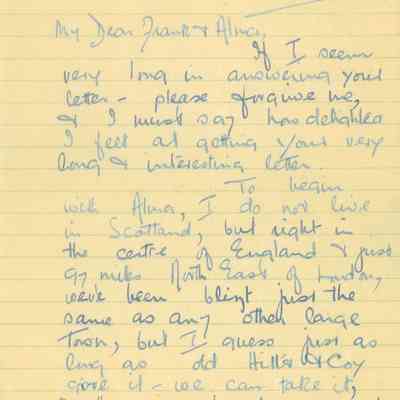 My Dear Frank & Alma,
If I seem
very long in answering your
letter - please forgive me,
& I must say how delighted
I feel at getting your very
long & interesting letter.
To begin
with Alma, I do not live
in Scotland, but right in
the centre of England & just
97 miles North East of London,
we've been blizt just the
same as any other large
Town, but I guess just as
long as old Hitler & Coy
give it - we can take it,